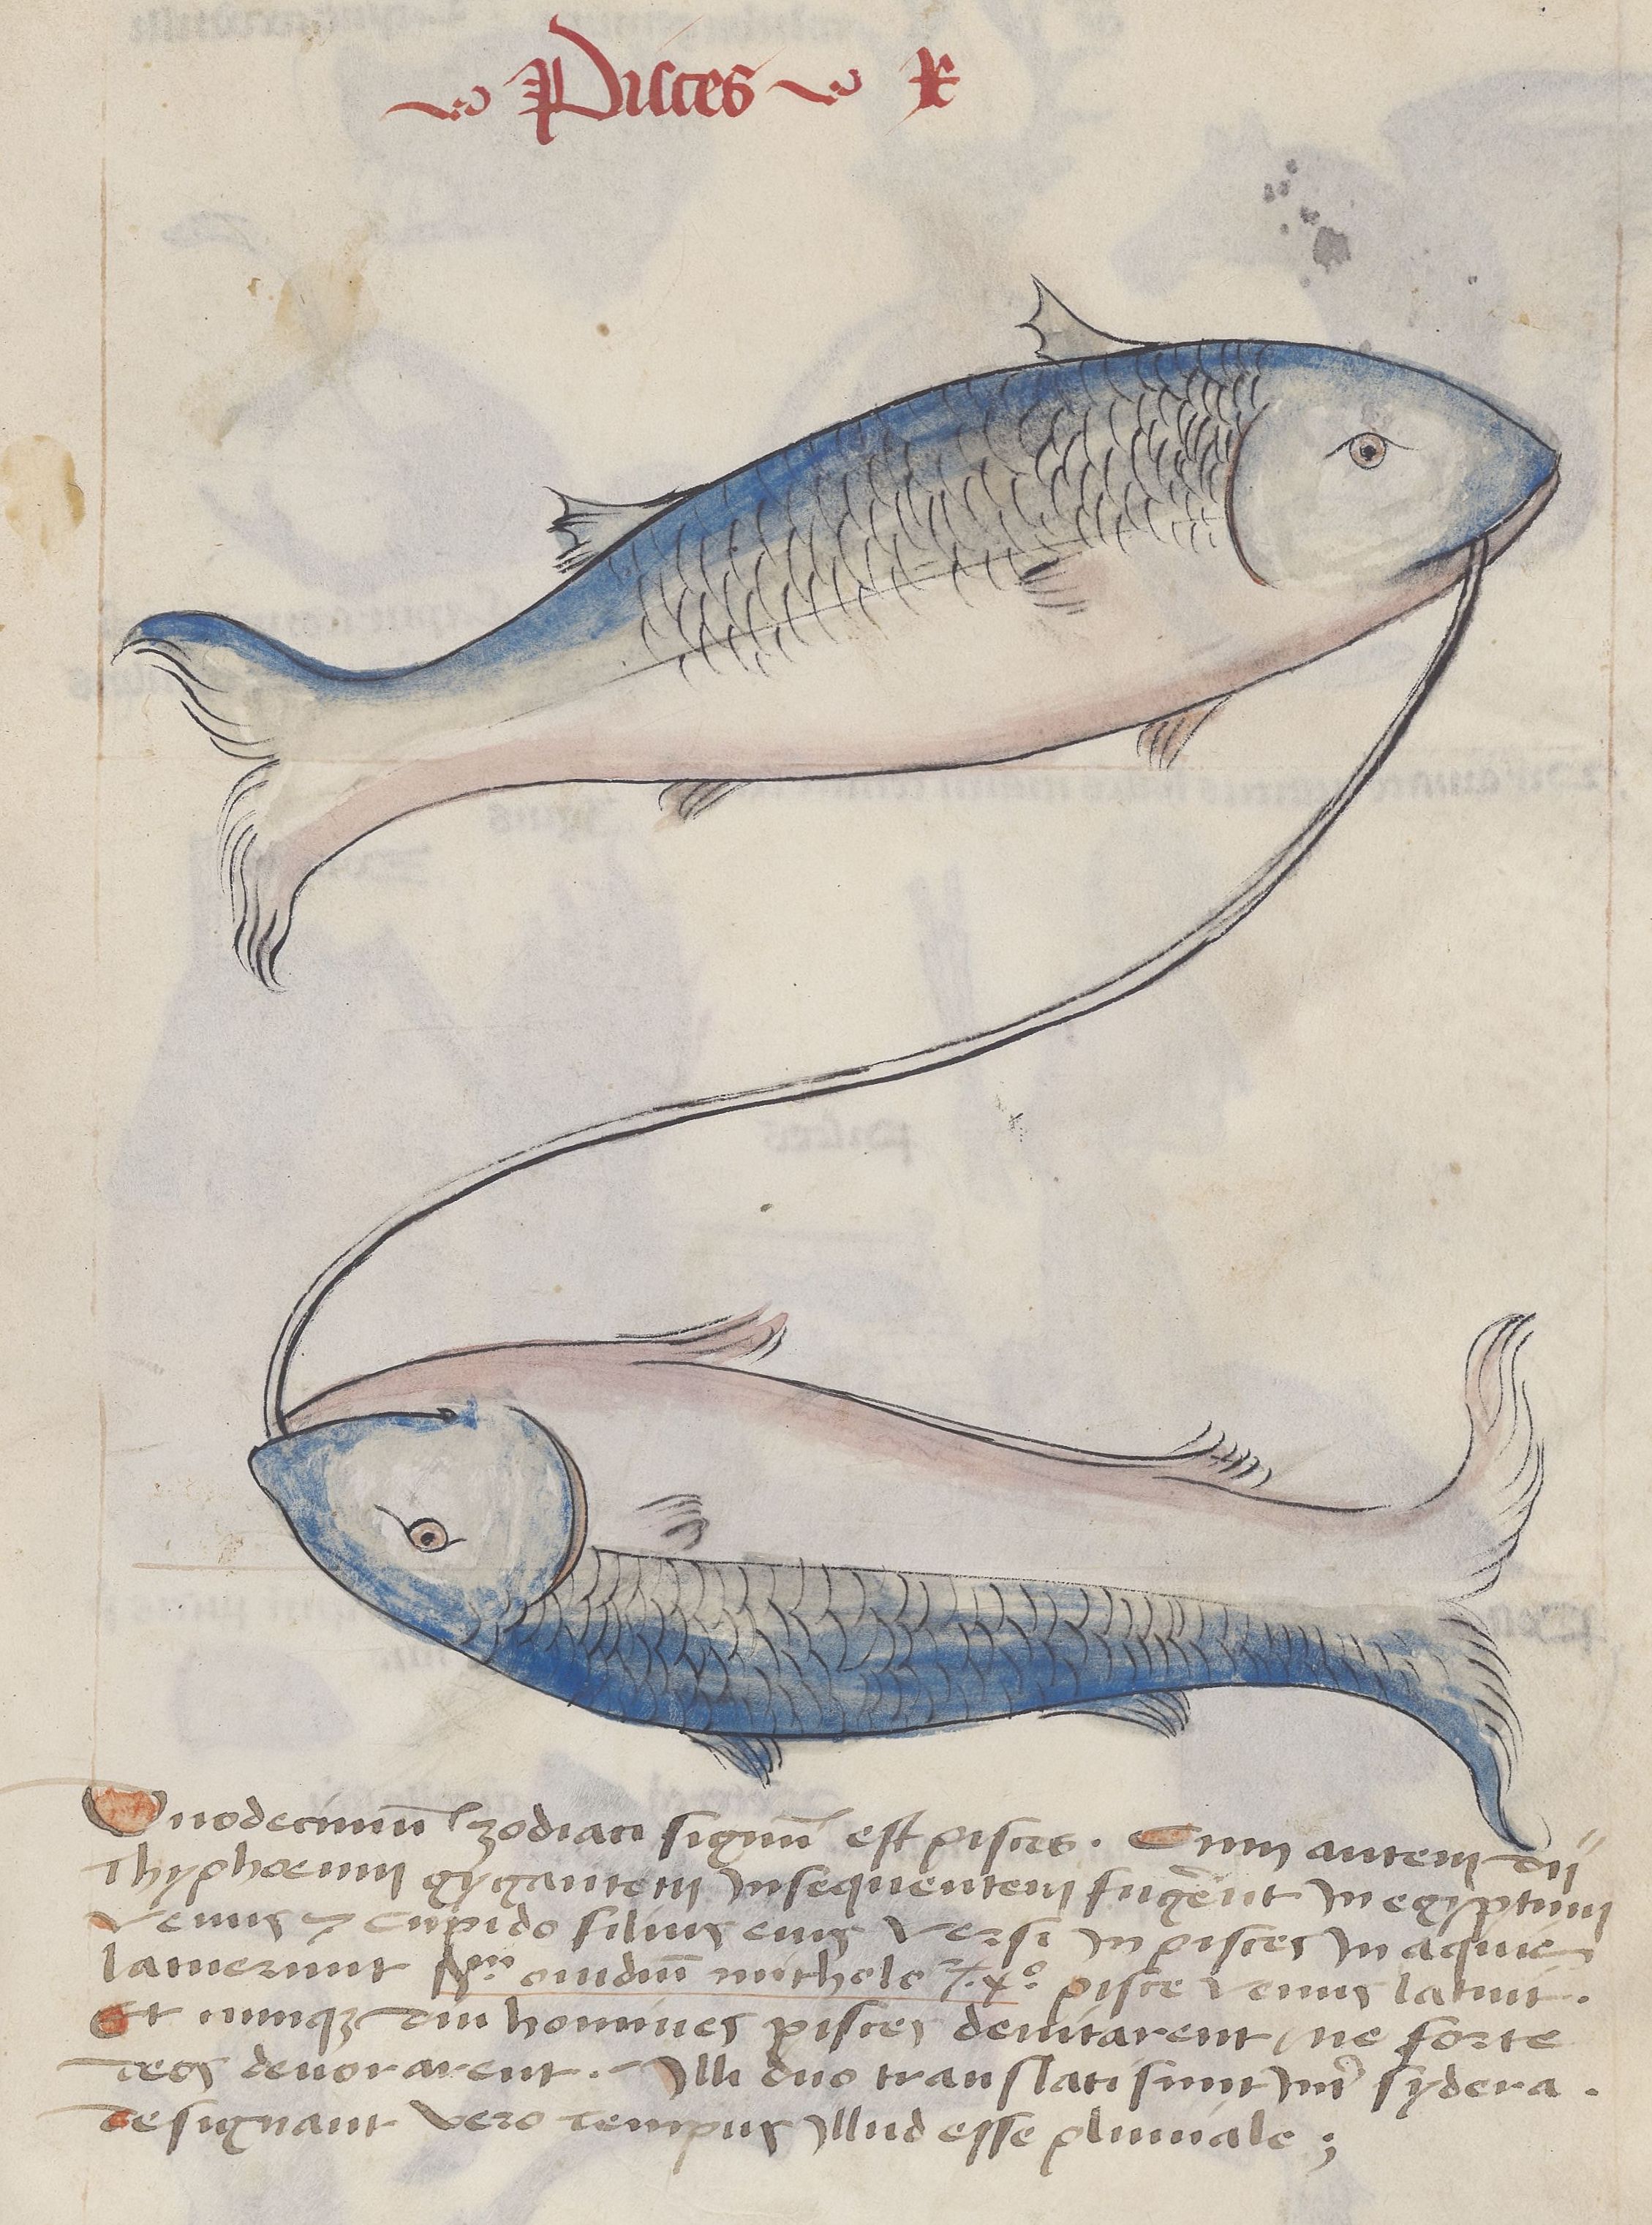 Pisces
Duodecimū zodiaci signū est pisces. Cum autem dii
Thyphoeum gygantem insequentem fugeēnt in egyptum
Venus & cupido filius eius versi in pisces in aquis
latuerunt ouidiū pisce venus latuit.
Et nunqꝫ diu homines pisces deuitarent ne forte
deos deuorarent. Illi duo translati sunt int sydera.
designant vero tempus illud esse pluuiale ;